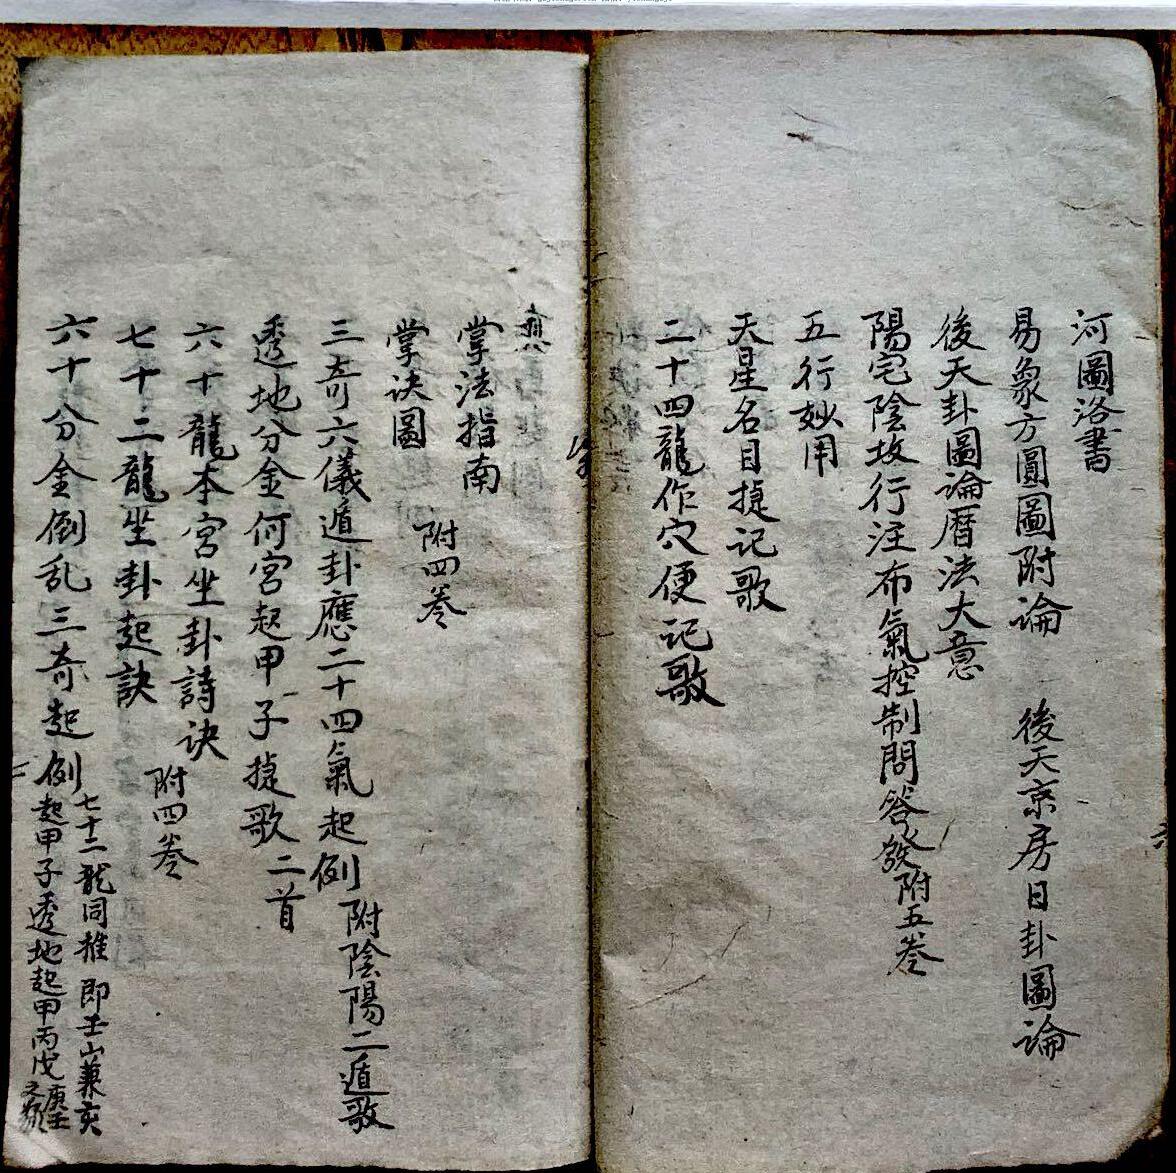 河圖洛書
易象方圓圖附論　後天京房日卦圖論
後天卦圖論曆法大意
陽宅陰坟行注布氣控制問答發附五卷
五行妙用
天星名目捷记歌
二十四龍作穴便记歌
掌法指南
掌诀圖　附四卷
三奇六儀遁卦應二十四氣起例附陰陽二遁歌
透地分金何宮起甲子捷歌二首
六十龍本宮坐卦詩诀
七十二龍坐卦起訣　附四卷
六十分金倒乱三奇起例
七十二龍同推即壬山兼亥
起甲子透地起甲丙戊庚壬之類